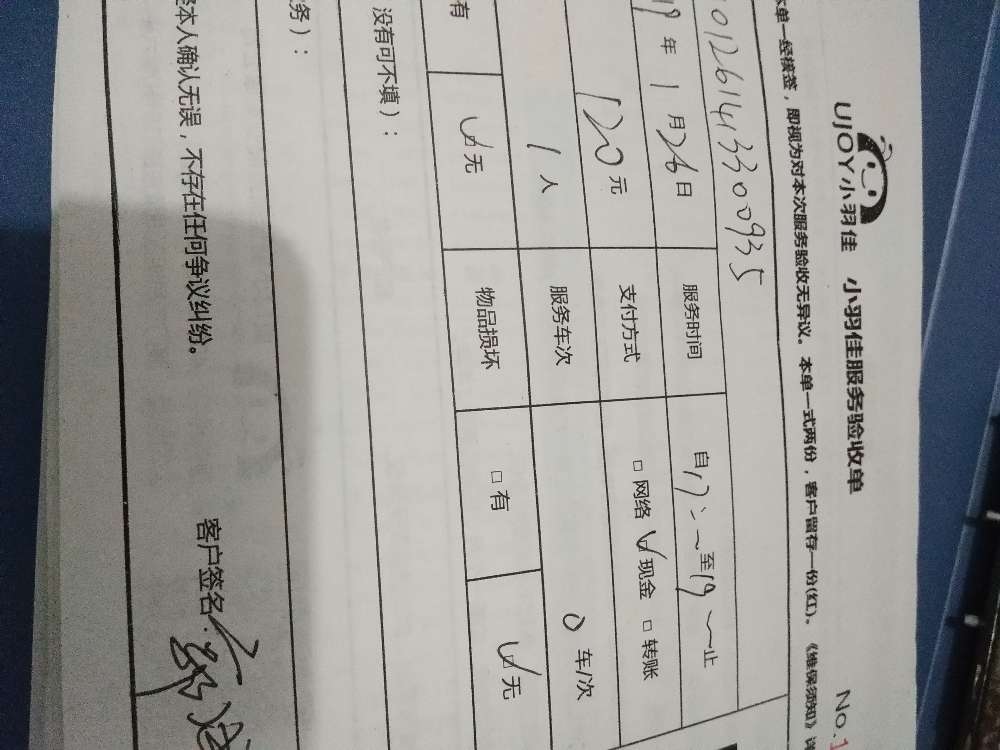 UJOY小羽佳 小羽佳服务验收单 No.1
本单一经核签，即视为对本次服务验收无异议。本单一式两份，客户留存一份(红)。《维保须知》详
012614133300935
19年1月26日 服务时间 自17:~至19~止
120元 支付方式 □网络 ☑现金 □转账
1人 服务车次 0车/次
有 ☑无 物品损坏 □有 ☑无
没有可不填）：
务）：
本人确认无误，不存在任何争议纠纷。 客户签名：